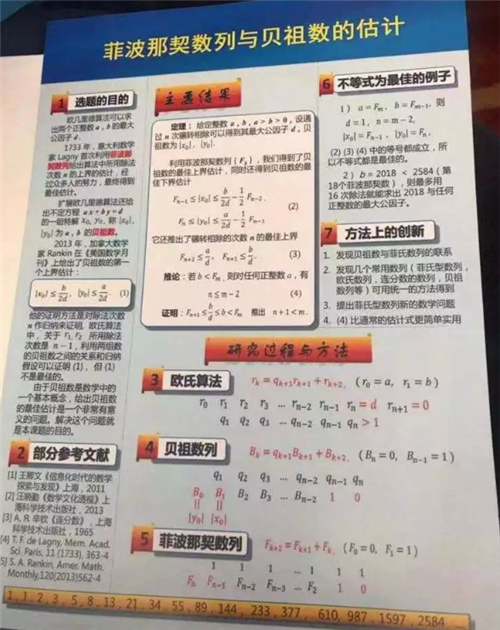 菲波那契数列与贝祖数的估计
1 选题的目的
欧几里德算法可以求
出两个正整数 a, b 的最大
公因子 d.
1733 年，意大利数学
家 Lagny 首次利用菲波那
契数列给出算法中所用除法
次数 n 的上界的估计，经
过众多人的努力，最终得到
最佳估计。
扩展欧几里德算法还给
出不定方程 ax + by = d
的一组特解 x₀, y₀, 称 |x₀|,
|y₀| 为 a, b 的贝祖数。
2013 年，加拿大数学
家 Rankin 在《美国数学月
刊》上给出了贝祖数的第一
个上界估计：
|x₀| ≤ b/2d, |y₀| ≤ a/2d (1)
他的证明方法是对除法次数
n 作归纳来证明。欧氏算法
中，关于 r₁, r₂ 所用除法
次数是 n − 1，利用两组数
的贝祖数之间的关系和归纳
假设可以证明 (1)，但 (1)
不是最佳的。
由于贝祖数是数学中的
一个基本概念，给出贝祖数
的最佳估计是一个非常有意
义的问题。解决这个问题就
是本课题的目的。
2 部分参考文献
[1] 王鄂文《信息化时代的数学
探索与发现》上海，2011
[2] 汪晓勤《数学文化透视》上
海科学技术出版社，2013
[3] A. Я. 辛钦《连分数》，上海
科学技术出版社，1965
[4] T. F. de Lagny, Mem. Acad.
Sci. Paris, 11 (1733), 363-4
[5] S. A. Rankin, Amer. Math.
Monthly,120(2013)562-4
主要结果
定理：给定整数 a, b, a > b > 0，设通
过 n 次辗转相除可以得到其最大公因子 d，贝
祖数为 |x₀|, |y₀|.
利用菲波那契数列 {Fₖ}，我们得到了贝
祖数的最佳上界估计，同时还得到贝祖数的最
佳下界估计
Fₙ₋₁ ≤ |x₀| ≤ b/2d − 1/2 Fₙ₋₂,
(2)
Fₙ ≤ |y₀| ≤ a/2d − 1/2 Fₙ₋₁.
它还推出了辗转相除的次数 n 的最佳上界
Fₙ₊₂ ≤ a/d, Fₙ₊₁ ≤ b/d. (3)
推论：若 b < Fₘ，则对任何正整数 a，有
n ≤ m − 2 (4)
证明：Fₙ₊₁ ≤ b/d ≤ b < Fₘ 推出 n + 1 < m.
6 不等式为最佳的例子
1) a = Fₘ, b = Fₘ₋₁, 则
d = 1, n = m − 2,
|x₀| = Fₙ₋₁, |y₀| = Fₙ.
(2) (3) (4) 中的等号都成立，所
以不等式都是最佳的。
2) b = 2018 < 2584 (第
18个菲波那契数)，则最多用
16 次除法就能求出 2018 与任何
正整数的最大公因子。
7 方法上的创新
1. 发现贝祖数与菲氏数列的联系
2. 发现几个常用数列 (菲氏型数列，
欧氏数列，连分数的数列，贝祖
数列等) 可用统一的方法得到
3. 提出菲氏型数列新的数学问题
4. (4) 比通常的估计式更简单实用
研究过程与方法
3 欧氏算法 rₖ = qₖ₊₁rₖ₊₁ + rₖ₊₂, (r₀ = a, r₁ = b)
r₀ r₁ r₂ r₃ ... rₙ₋₂ rₙ₋₁ rₙ = d rₙ₊₁ = 0
q₁ q₂ q₃ ... qₙ₋₂ qₙ₋₁ qₙ > 1
4 贝祖数列 Bₖ = qₖ₊₁Bₖ₊₁ + Bₖ₊₂, (Bₙ = 0, Bₙ₋₁ = 1)
q₁ q₂ q₃ ... qₙ₋₂ qₙ₋₁ qₙ
B₀ B₁ B₂ B₃ ... Bₙ₋₂ 1 0
|| ||
|y₀| |x₀|
5 菲波那契数列 Fₖ₊₂ = Fₖ₊₁ + Fₖ, (F₀ = 0, F₁ = 1)
1 1 1 ... 1 1 1
Fₙ Fₙ₋₁ Fₙ₋₂ Fₙ₋₃ ... F₂ 1 0
1, 1, 2, 3, 5, 8, 13, 21, 34, 55, 89, 144, 233, 377, 610, 987, 1597, 2584